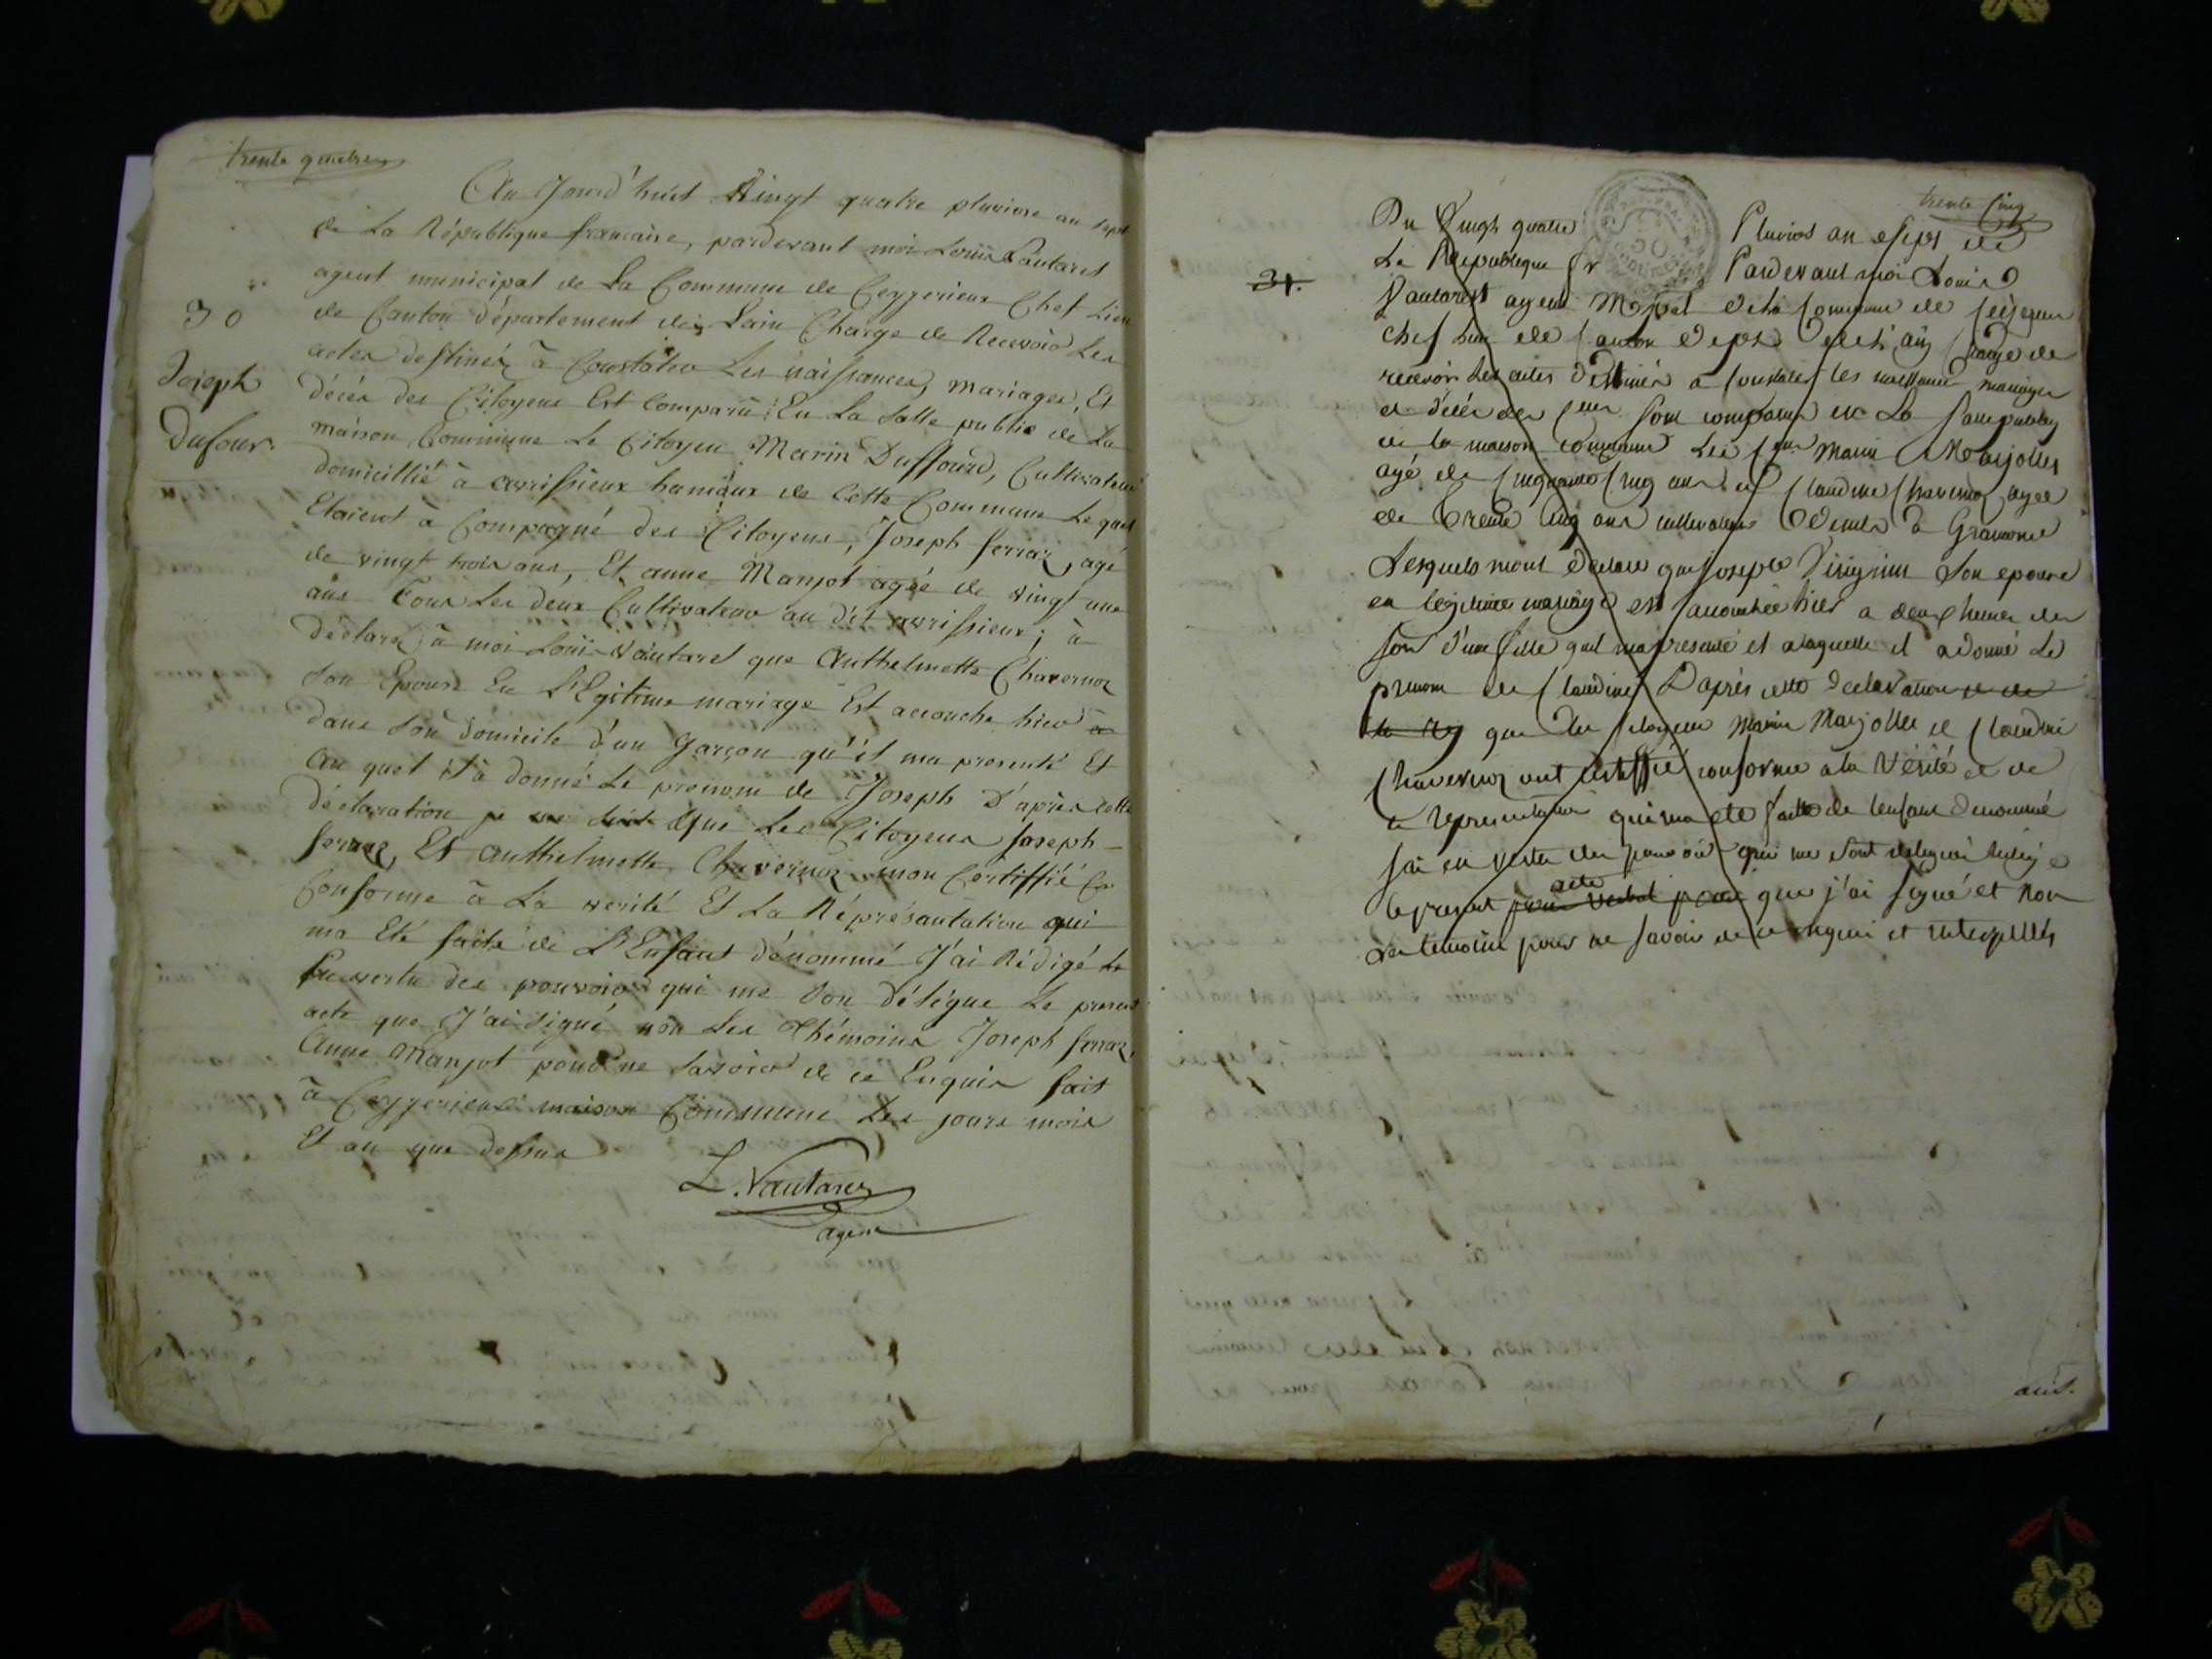 trente quatre
Au Jourd'huit Vingt quatre pluviose an sept
de La République francaise, pardevant moi Louis Vautaret
agent municipal de La Commune de Ceyzerieux Chef Lieu
de Canton département de Lain Charge de Recevoir Les
actes destinés à Constater Les naissances, mariages, Et
décés des Citoyens Est Comparu En La Salle public de La
maison Commune Le Citoyen Marin Duffourd, Cultivateur
domicillié à avrissieux hamaux de Cette Commune Lequel
Etaient à Compagné des Citoyens, Joseph ferraz, agé
de vingt trois ans, Et anne Manjot agée de vingt une
ans Tous Les deux Cultivateur au dit avrissieux; à
déclaré à moi Louis Vautaret que Anthelmette Chavernoz
Son Epouse En L'Egitime mariage Est accouche hier a
dans Son domicile d'un Garçon qu'il ma presenté Et
Au quel il à donné Le prenom de Joseph D'après cette
déclaration je que Les Citoyens Joseph
ferraz, Et Anthelmette Chavernoz mon Certiffié
Conforme à La verité Et La Réprésantation qui
ma Eté faite de L'Enfant dénommé J'ai Rédigé Le
En vertu des pouvoir qui me Son délégue Le present
acte que J'ai Signé non Les Thémoins Joseph ferraz,
Anne Manjot pour ne Savoir de ce Enquis fait
à Ceyzerieux maison Commune Les jours mois
Et an que dessus
L. Vautaret
agent
30
Joseph
Dufour.
trente Cinq
31.
Du Vingt quatre Pluvios an sept de
La Republique fr Pardevant moi Louis
Vautaret agent Mpal de la Commune de
chef lieu de Canton dept de L'ain Charge de
recevoir les actes destinés a Constater les naissance mariages
et décés des sont comparus en La Salle publiq
de la maison commune Les Marin Marjollet
agé de Cinquante Cinq ans et Claudine Chavernoz agee
de Trente Cinq ans cultivateurs à Gramond
Lesquels mont declare que Josepte Son epouse
en legitime mariage est accouchée hier a deux heures du
soir d'une fille quil ma presenté et a laquelle il a donné Le
prenom de Claudine D'après cette declaration
que les Citoyens Marin Marjollet et Claudine
Chavernoz ont certiffié conforme a la Vérité et de
la representation qui ma eté faitte de lenfant denommé
Jai en vertu des pouvoir qui me sont delegués redigé
le present procè verbal acte que j'ai signé et non
les temoins pour ne savoir de ce enquis et interpellés